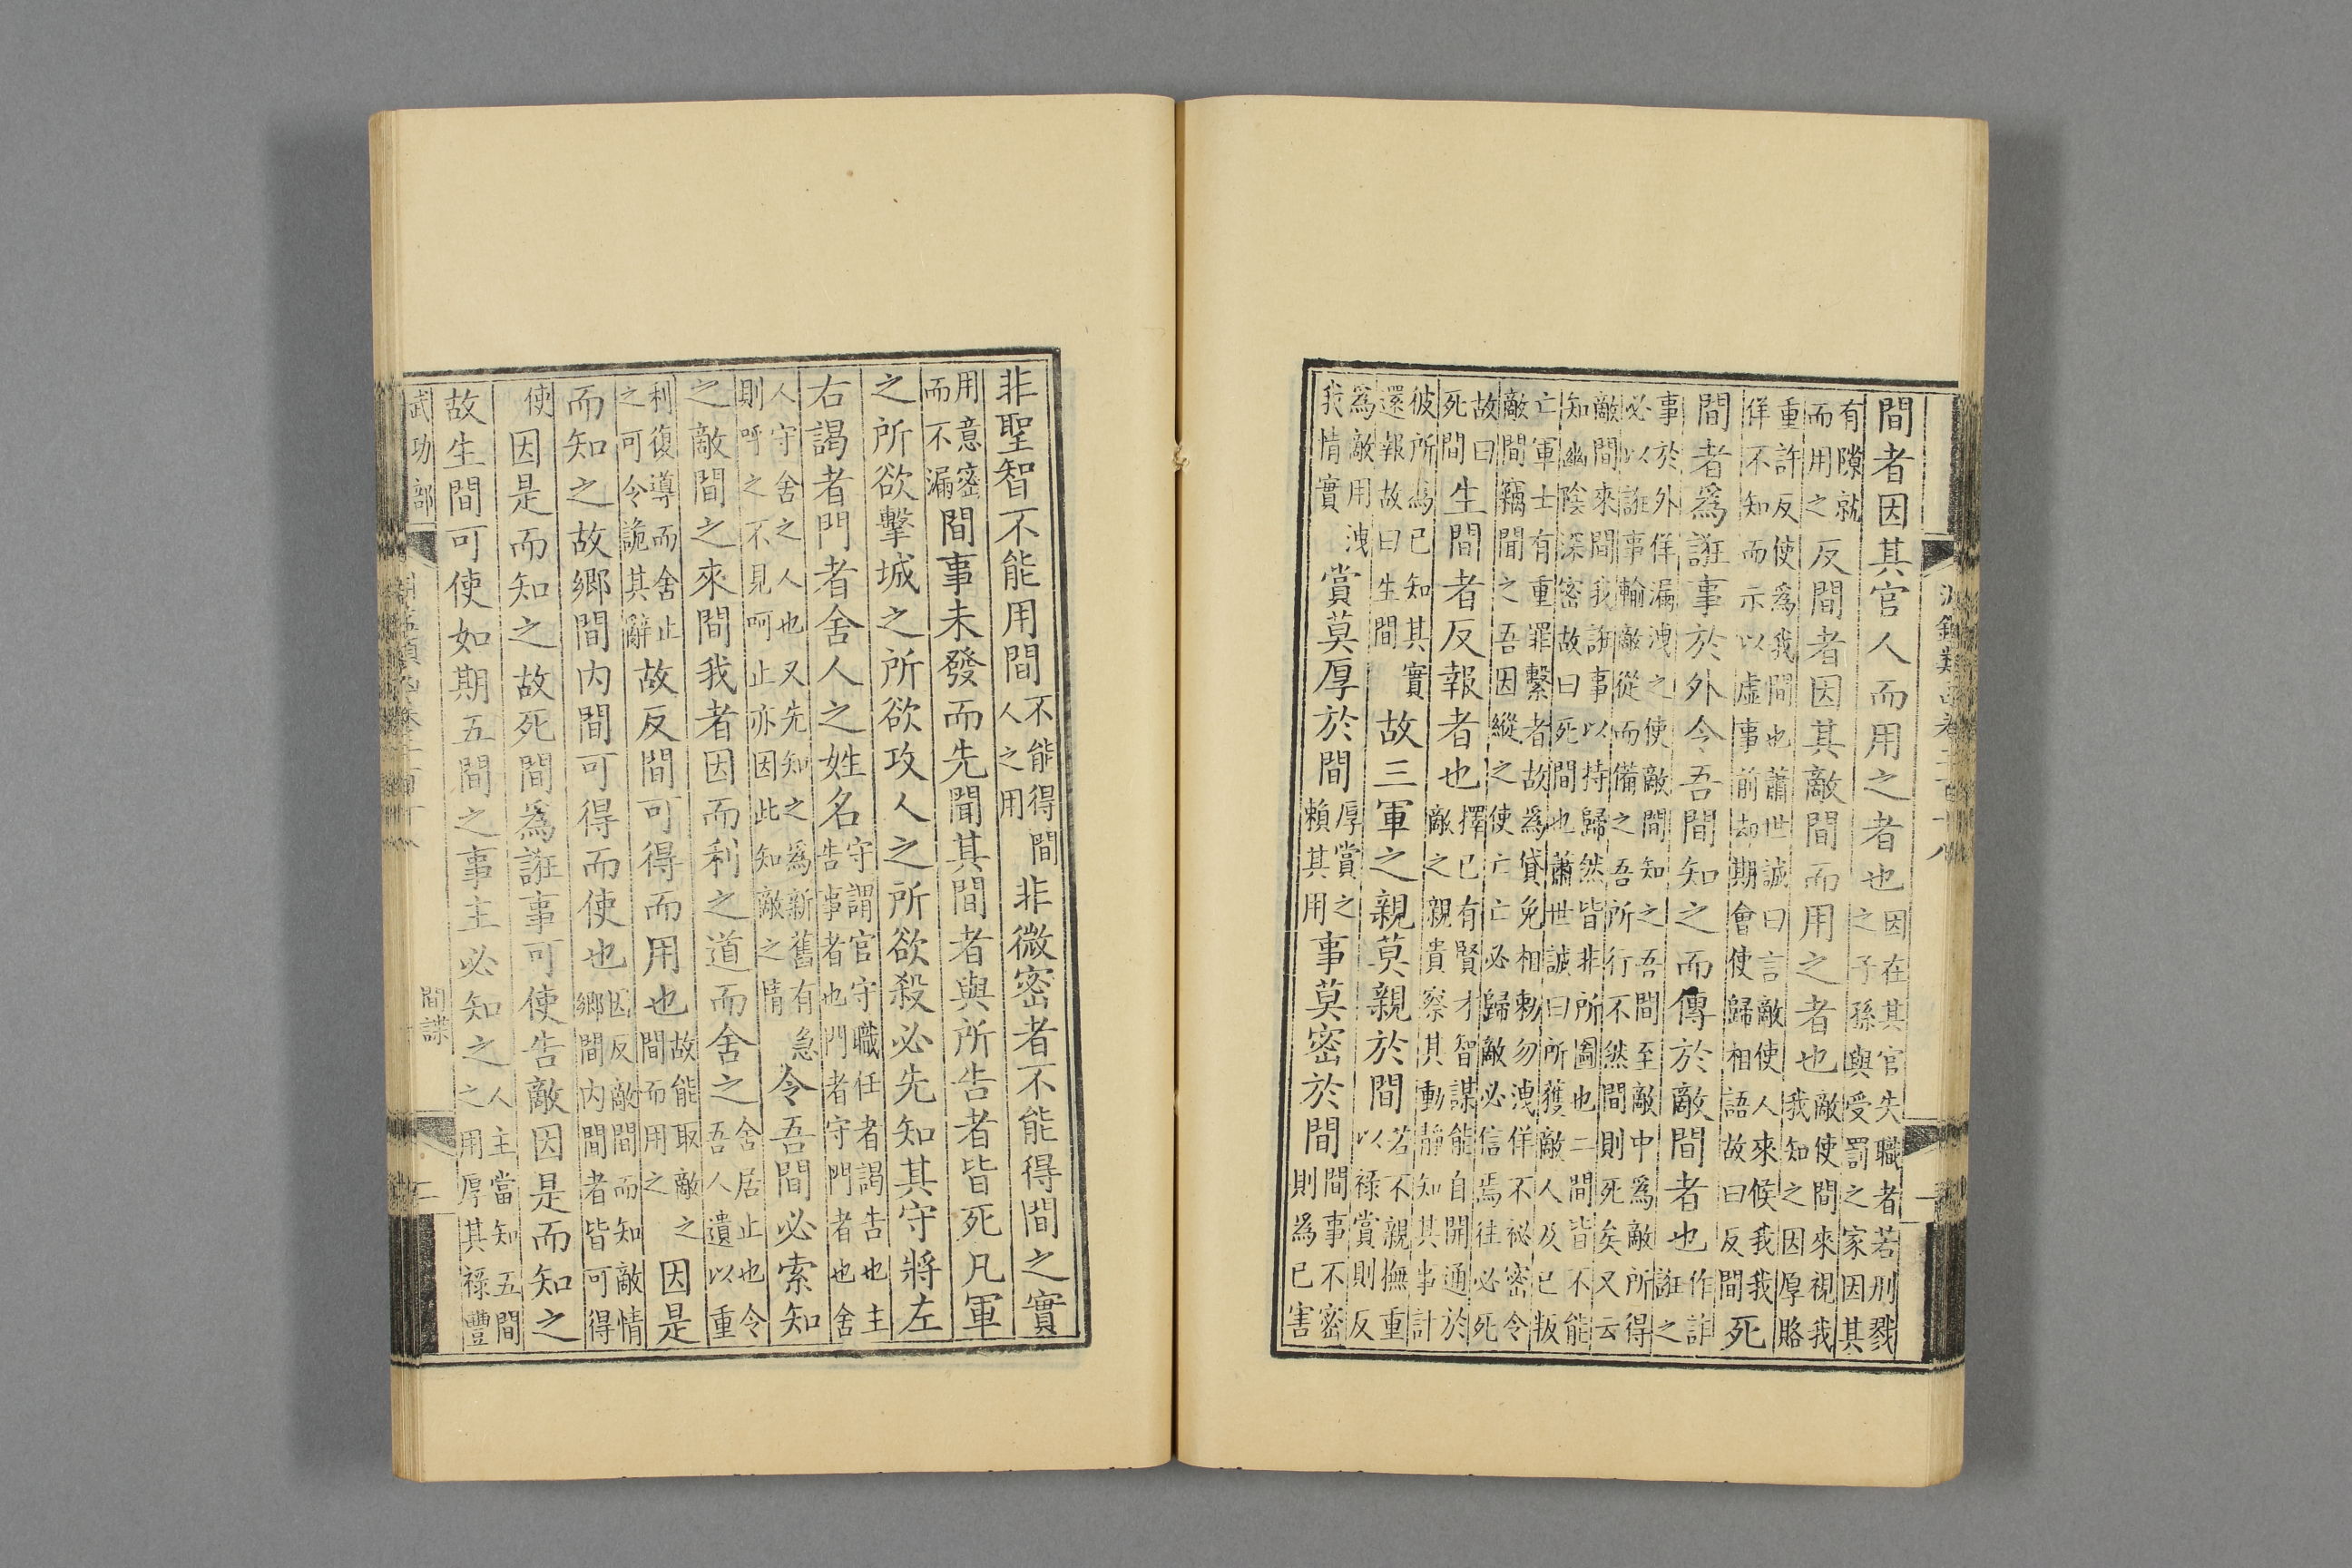 淵鑑類函卷二百一十八
間者因其官人而用之者也因在其官失職者若刑戮之子孫與受罰之家因其
有隙就而用之反間者因其敵間而用之者也敵使間來視我我知之因厚賂
重許反使為我間也蕭世諴曰言敵使人來候我我佯不知而示以虛事前却期會使歸相語故曰反間死
間者為誑事於外令吾間知之而傳於敵間者也作詐誑之
事於外佯漏洩之使敵間知之吾間至敵中為敵所得必以誑事輸敵從而備之吾所行不然間則死矣又云
敵間來間我誑事以持歸然皆非所圖也二間皆不能知幽陰深密故曰死間也蕭世諴曰所獲敵人及已叛
亡軍士有重罪繫者故為貸免相勅勿洩佯不祕密令敵間竊聞之吾因縱之使亡亡必歸敵必信焉往必死
故曰死間生間者反報者也擇已有賢才智謀能自開通於敵之親貴察其動靜知其事計
彼所為已知其實還報故曰生間故三軍之親莫親於間若不親撫重以祿賞則反
為敵用洩我情實賞莫厚於間厚賞之賴其用事莫密於間間事不密則為已害
非聖智不能用間不能得間人之用非微密者不能得間之實
用意密而不漏間事未發而先聞其間者與所告者皆死凡軍
之所欲擊城之所欲攻人之所欲殺必先知其守將左
右謁者門者舍人之姓名守謂官守職任者謁告也主告事者也門者守門者也舍
人守舍之人也又先知之為新舊有急則呼之不見呵止亦因此知敵之情令吾間必索知
之敵間之來間我者因而利之道而舍之舍居止也令吾人遺以重
利復導而舍止之可令詭其辭故反間可得而用也故能取敵之間而用之因是
而知之故鄉間内間可得而使也因反敵間而知敵情鄉間内間者皆可得
使因是而知之故死間為誑事可使告敵因是而知之
故生間可使如期五間之事主必知之人主當知五間之用厚其祿豐
武功部 間諜 二